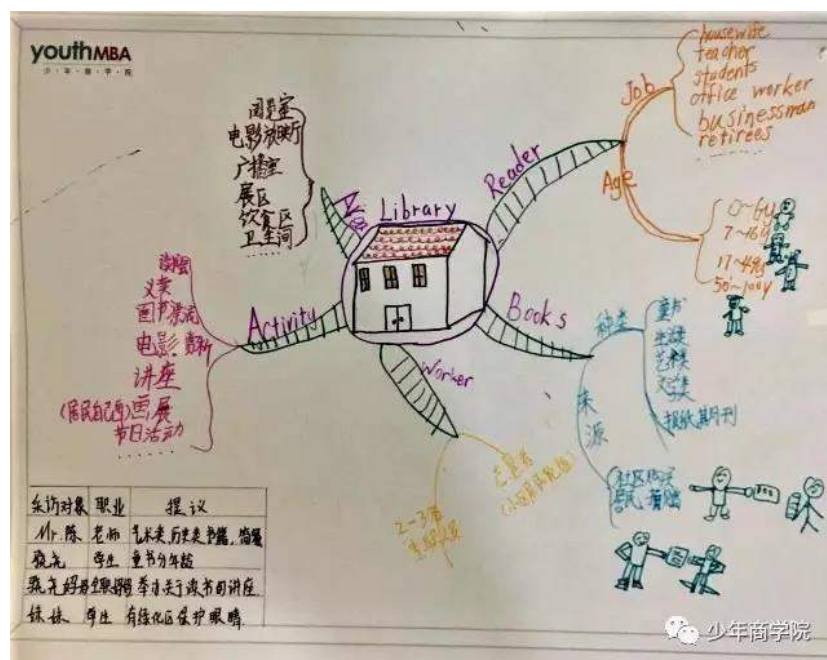 youthMBA
少年商学院
Library
阅览室
电影放映厅
广播室
展区
饮食区
卫生间
......
Reader
Job
housewife
teacher
students
office worker
businessman
retirees
......
Age
0~6y
7~16y
17~49y
50~100y
Books
种类
童书
生活类
艺术类
文学类
报纸期刊
来源
社区购买
居民捐赠
Worker
2~3名
志愿者
Activity
义卖
图书漂流
电影赏析
讲座
(居民自己画)画展
节日活动
......
采访对象 职业 提议
Mr.陈 老师 艺术类,历史类书籍,
学生 童书分年龄
举办关于读书的讲座
妹妹 学生 有绿化区保护眼睛.
少年商学院